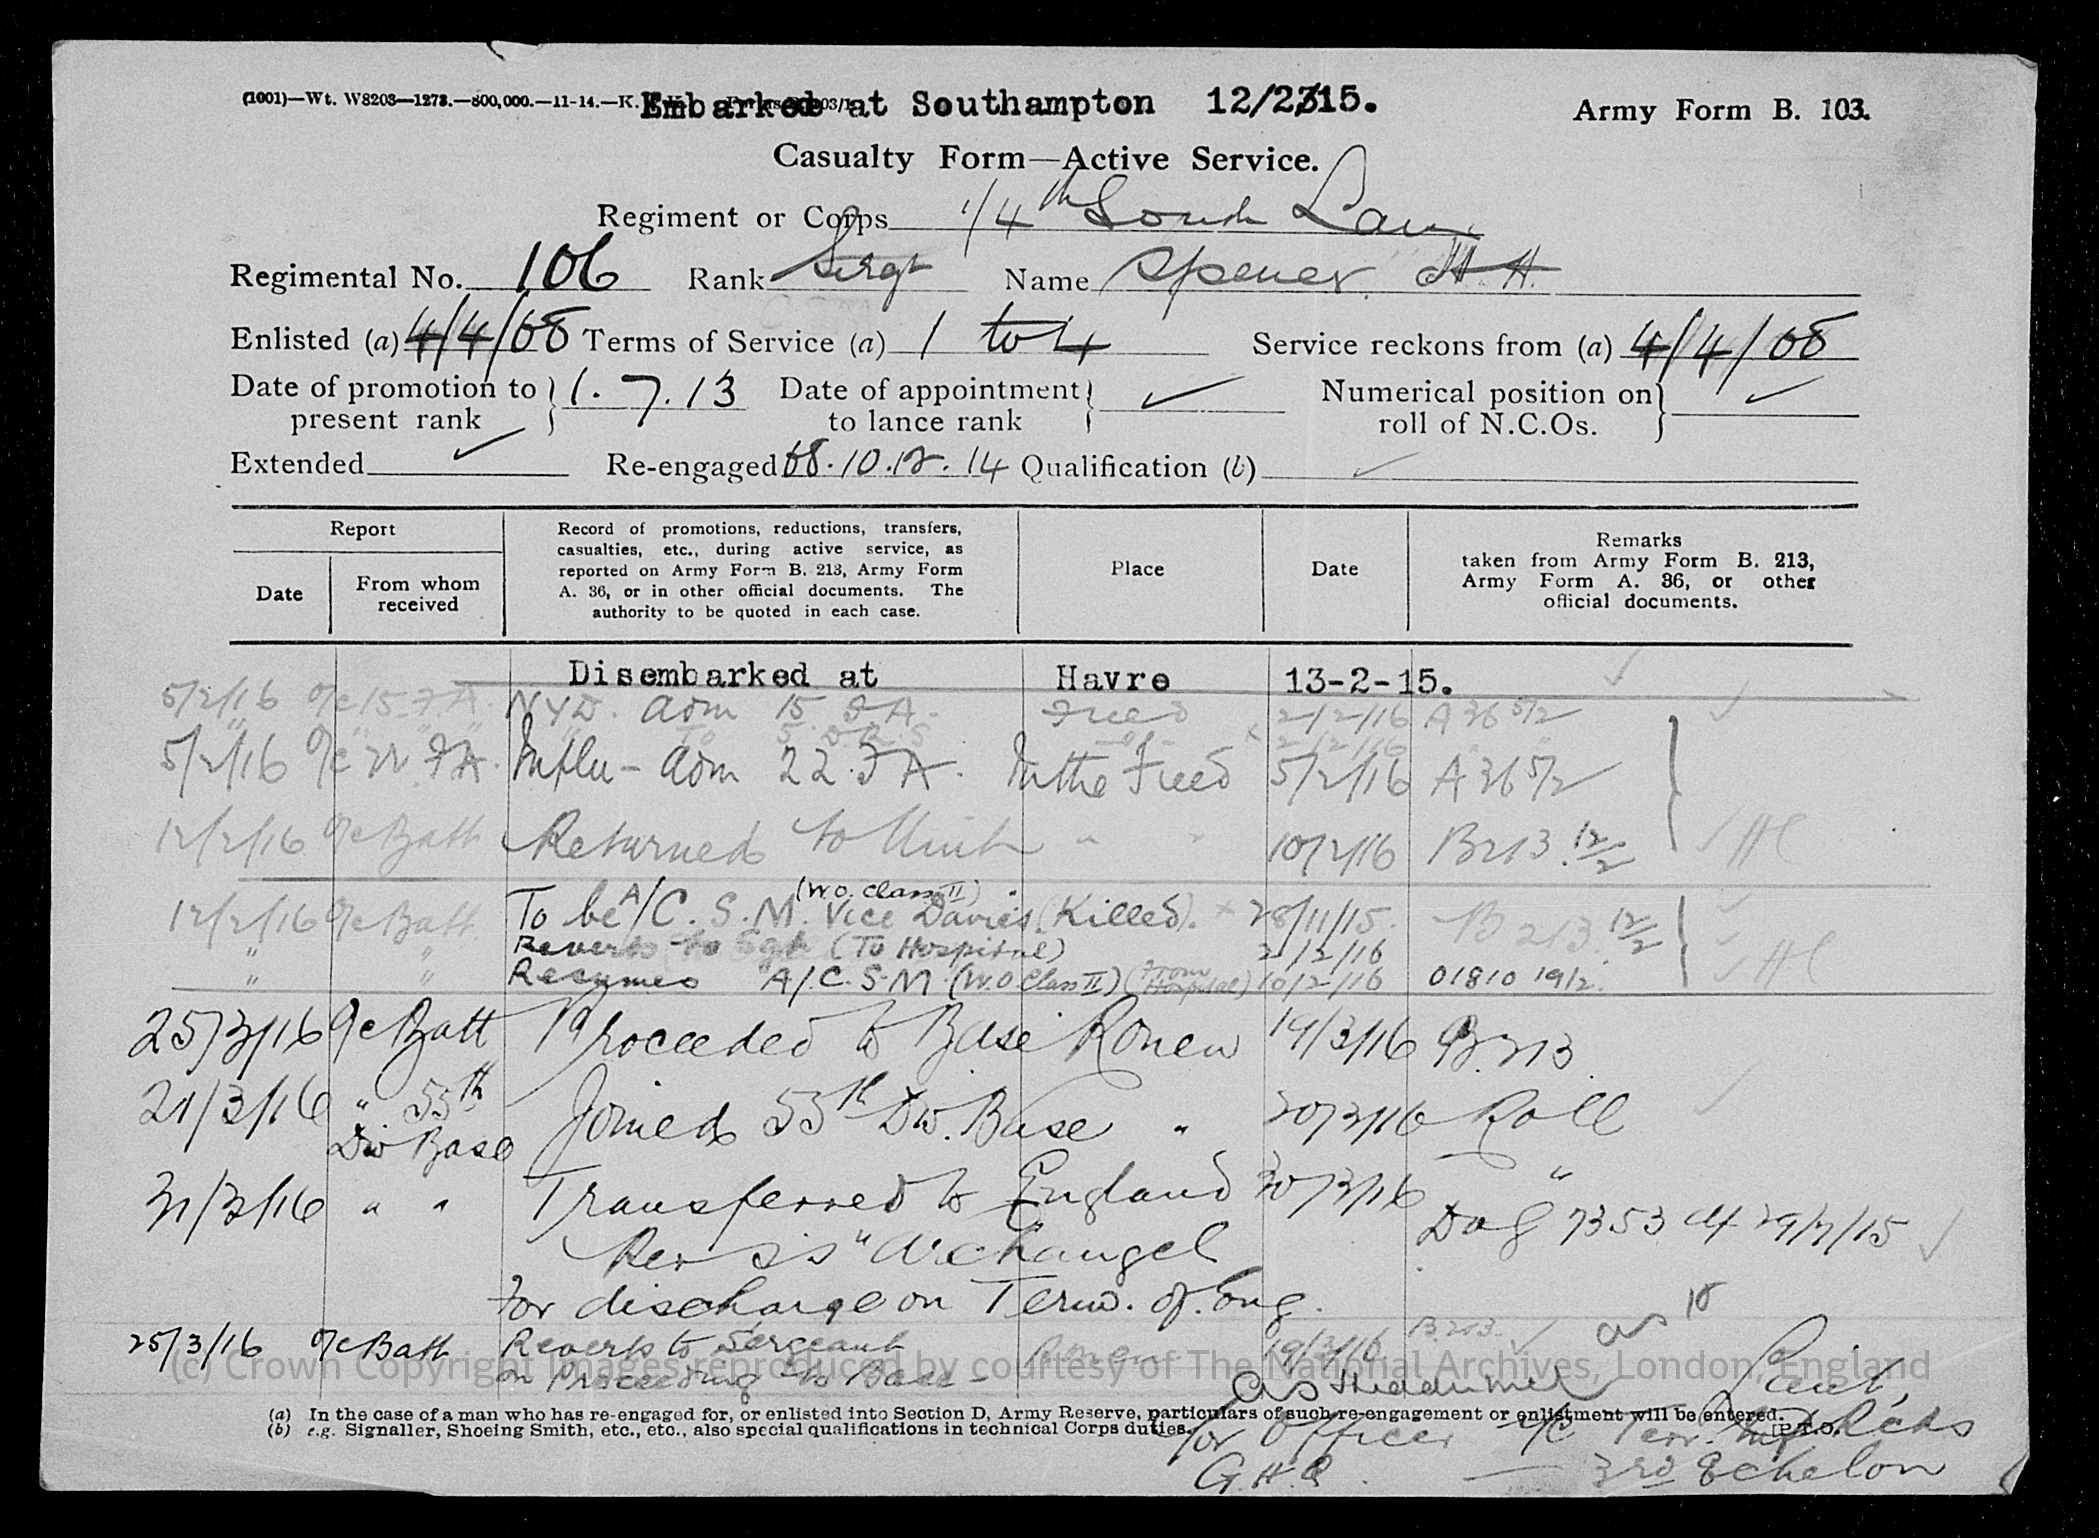 (1001)—Wt. W8203—1273.—800,000.—11-14.—K.
Embarked at Southampton 12/2/15.
Army Form B. 103.
Casualty Form—Active Service.
Regiment or Corps 1/4th South Lan
Regimental No. 106 Rank Sergt Name Spencer. H.
Enlisted (a) 4/4/08 Terms of Service (a) 1 to 4 Service reckons from (a) 4/4/08
Date of promotion to present rank 1.7.13 Date of appointment to lance rank ✓ Numerical position on roll of N.C.Os. ✓
Extended ✓ Re-engaged 10.12.14 Qualification (b) ✓
Report
Date
From whom received
Record of promotions, reductions, transfers,
casualties, etc., during active service, as
reported on Army Form B. 213, Army Form
A. 36, or in other official documents. The
authority to be quoted in each case.
Place
Date
Remarks
taken from Army Form B. 213,
Army Form A. 36, or other
official documents.
Disembarked at Havre 13-2-15.
5/2/16 O/c 15 F.A. NYD. adm 15 F.A. Field 2/2/16 A36 5/2
" " " " To 5. D.R.S 2/2/16
5/2/16 O/c 22 F.A. Influ - adm 22 F.A. In the Field 5/2/16 A36 5/2
12/2/16 O/c Batt Returned to Unit " " 10/2/16 B213 12/2
12/2/16 O/c Batt To be A/C.S.M. (W.O. Class II) Vice Davies (Killed). 28/11/15 B213 12/2
" " Reverts to Sgt (To Hospital) 2/2/16
" " Resumes A/C.S.M (W.O Class II) (From Hospital) 10/2/16 01810 19/2.
25/3/16 O/c Batt Proceeded to Base Rouen 19/3/16 B.213
21/3/16 " 55th Div Base Joined 55th Div. Base " 20/3/16 Roll
31/3/16 " " Transferred to England 30/3/16 "
DAG 7353 29/7/15
Per S.S "Archangel
For discharge on Term. of. Eng.
25/3/16 O/c Batt Reverts to Sergeant Rouen 19/3/16 B.213
on Proceeding to Base -
(c) Crown Copyright Images reproduced by courtesy of The National Archives, London, England
Lieut,
(a) In the case of a man who has re-engaged for, or enlisted into Section D, Army Reserve, particulars of such re-engagement or enlistment will be entered.
(b) e.g. Signaller, Shoeing Smith, etc., etc., also special qualifications in technical Corps duties. [P.T.O.
for Officer I/C Terr. Rcds
G.H.Q. — 3rd Echelon